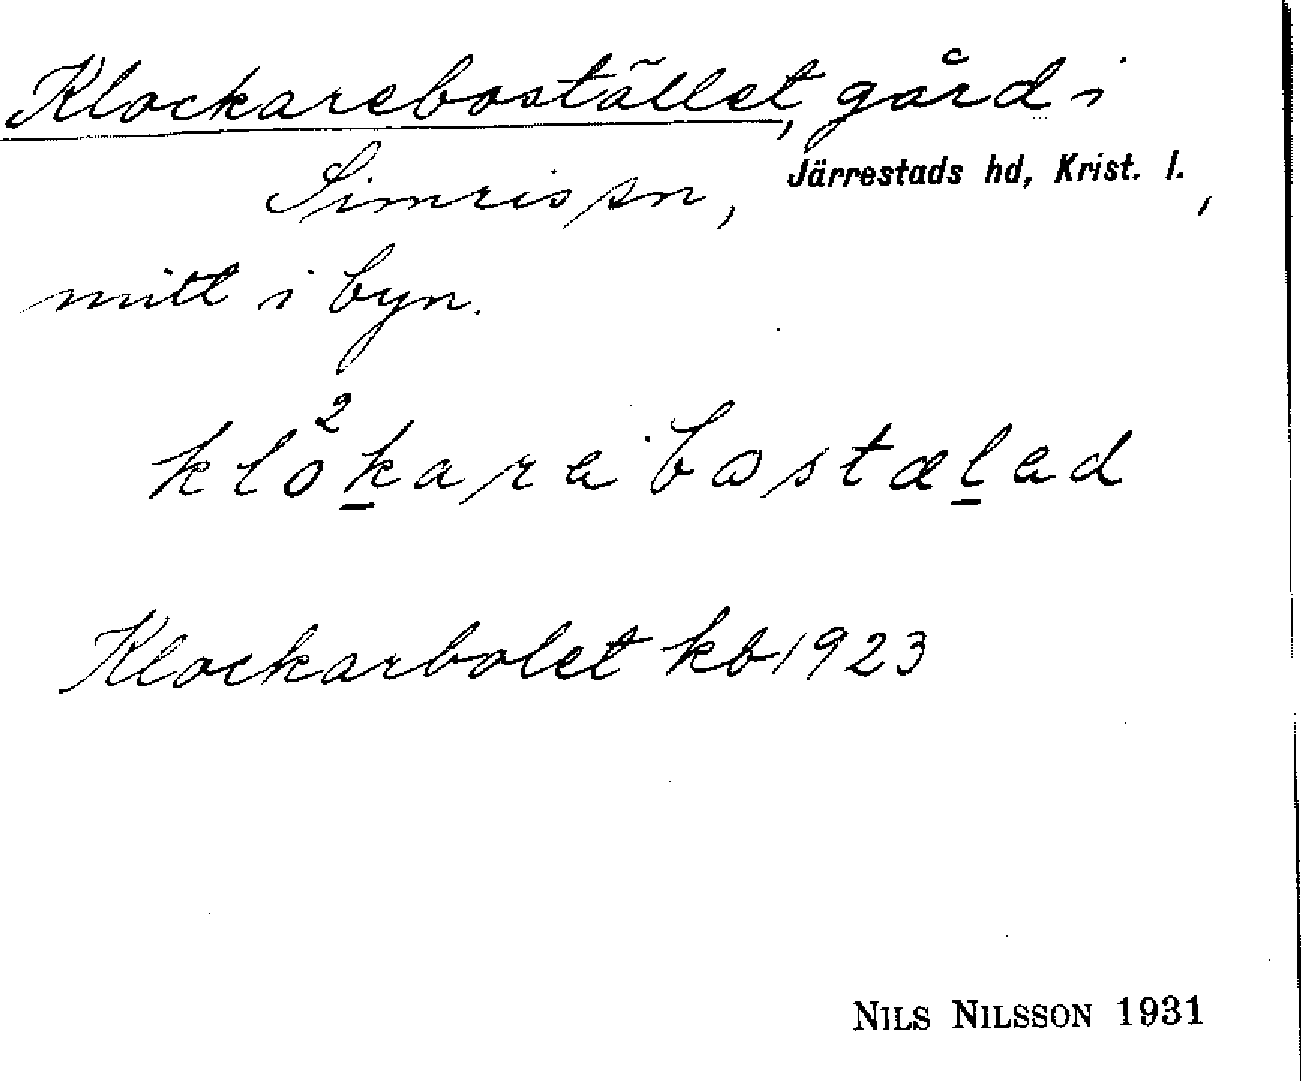 Klockarebostället, gård i
Simris sn, Järrestads hd, Krist. l.,
mitt i byn.
klo²k̲arabostæl̲ad
Klockarbolet kb 1923
NILS NILSSON 1931